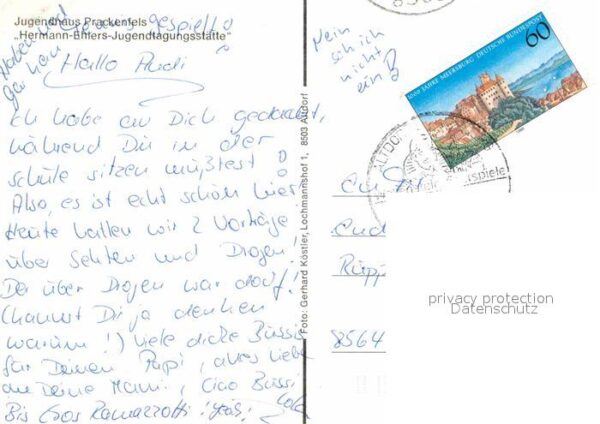 Jugendhaus Prackenfels
„Hermann-Ehlers-Jugendtagungsstätte"
gespielt!
Hallo Rudi
Ich habe an Dich gedacht,
während Du in der
schule sitzen mußtest!
Also, es ist echt schön hier!
Heute hatten wir 2 Vorträge
über Sekten und Drogen!
Der über Drogen war doof!
(kannst Dir ja denken
warum!) Viele dicke Bussis
für Deinen Papi, alles liebe
an Deine Mami, Ciao Bussi
Bis Eros Ramazzotti
Foto: Gerhard Köstler, Lochmannshof 1, 8503 Altdorf
nicht
ein
1000 JAHRE MEERSBURG DEUTSCHE BUNDESPOST
60
ALTDOR
spiele
An
8564
privacy protection
Datenschutz